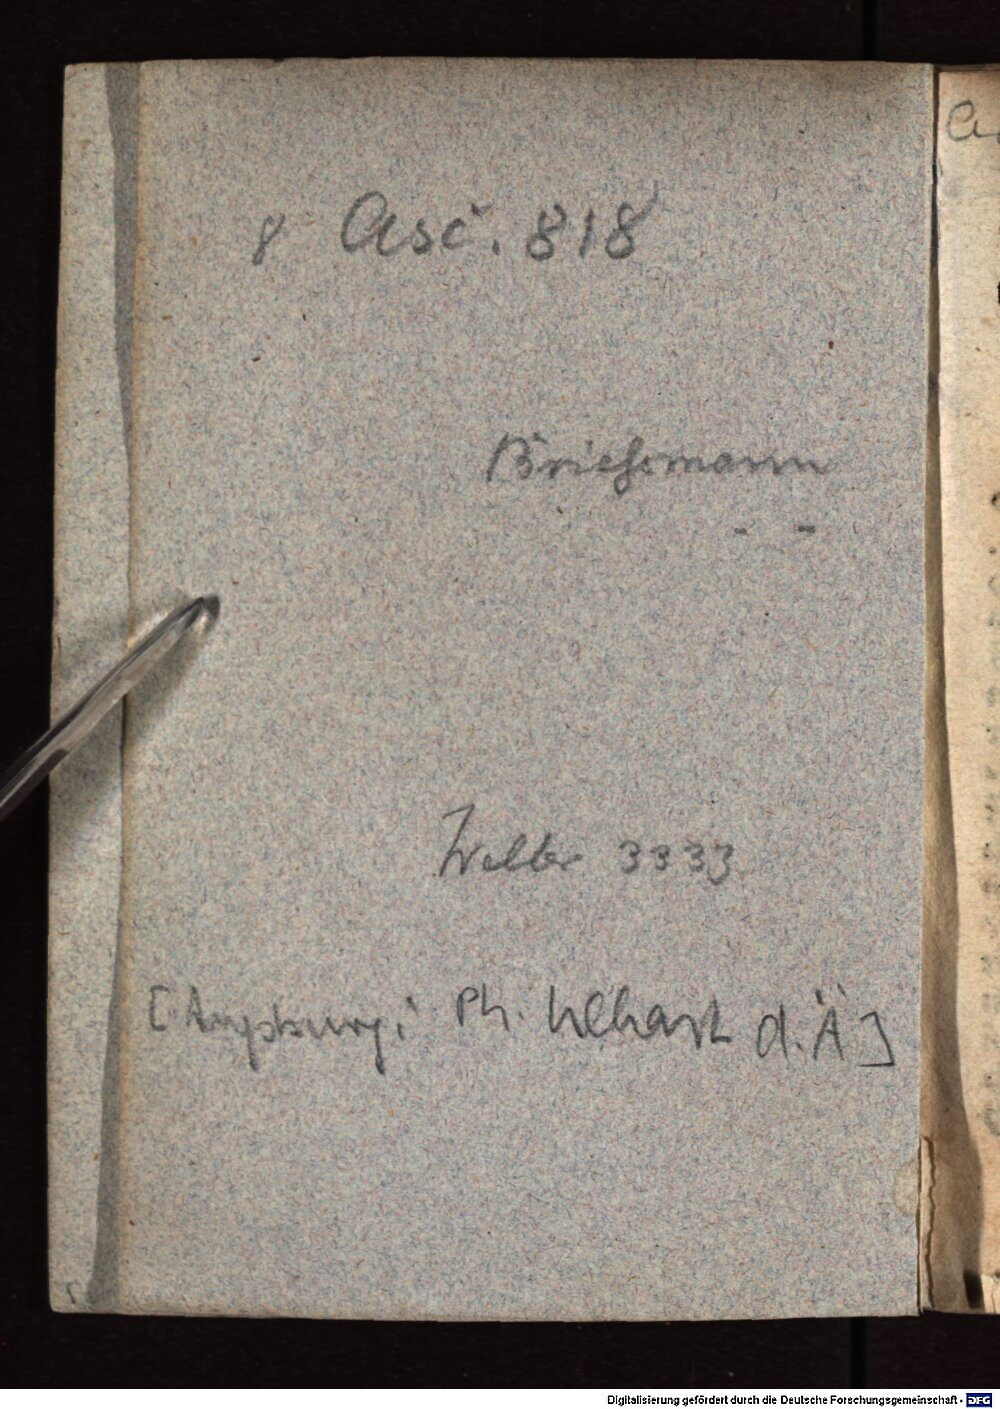 8 Asc. 818
Briefsmann
- -
Weller 3333
[Augsburg: Ph. Ulhart d. Ä]
Digitalisierung gefördert durch die Deutsche Forschungsgemeinschaft - DFG